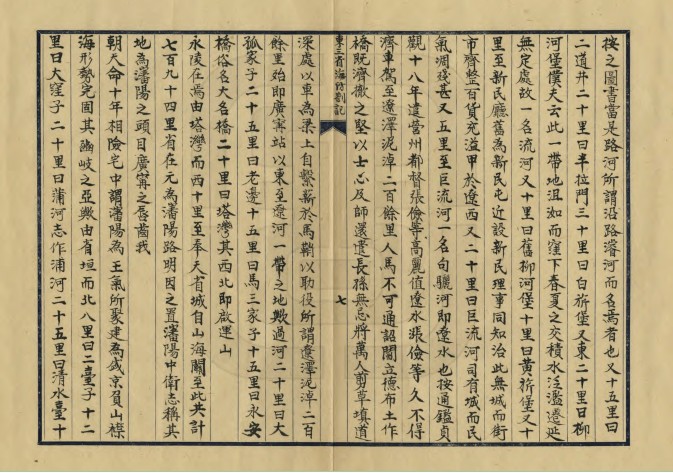 按之圖書當是路河所謂沿路濬河而名焉者也又十五里曰
二道井二十里曰半拉門三十里曰白旂堡又東二十里曰柳
河堡僕夫云此一帶地沮如而窪下春夏之交積水泛濫遷延
無定處故一名流河又十里曰舊柳河堡十里曰黄旂堡又十
里至新民廳舊為新民屯近設新民理事同知治此無城而街
市齊整百貨充溢甲於遼西又二十里曰巨流河司有城而民
氣凋殘甚又五里至巨流河一名句驪河即遼水也按通鑑貞
觀十八年遣營州都督張儉等高麗值遼水漲儉等久不得
濟車駕至遼澤泥淖二百餘里人馬不可通詔閻立德布土作
橋既濟徹之堅以士心及師還遣長孫無忌將萬人剪草填道
東三省海防劄記
七
深處以車為梁上自繫薪於馬鞘以助役所謂遼澤泥淖二百
餘里殆即廣寗站以東至遼河一帶之地歟過河二十里曰大
孤家子二十五里曰老邊十五里曰馬三家子十五里曰永安
橋俗名大名橋二十里曰塔灣其西北即啟運山
永陵在焉由塔灣而西十里至奉天省城自山海關至此共計
七百九十四里省在元為瀋陽路明因之置瀋陽中衛志稱其
地為瀋陽之頭目廣寗之唇齒我
朝天命十年相險宅中謂瀋陽為王氣所聚建為盛京負山襟
海形勢完固其豳岐之亞歟由省垣而北八里曰二臺子十二
里曰大窪子二十里曰蒲河志作浦河二十五里曰清水臺十